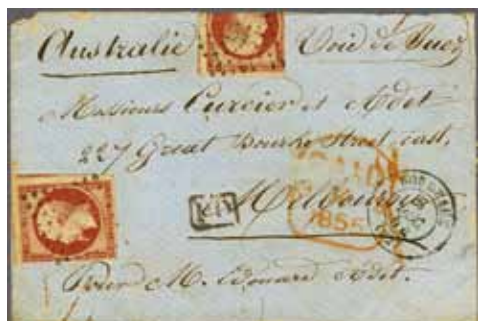 Australie Voie de Suez
Messieurs Curcier et Adet
227 Great Bourke Street east,
Melbourne
PD
PAID
1856
BORDEAUX
Pour M. Edouard Adet.